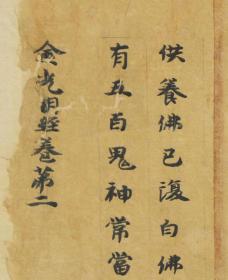 供養佛已復白佛
有五百鬼神常當
金光明經卷第二